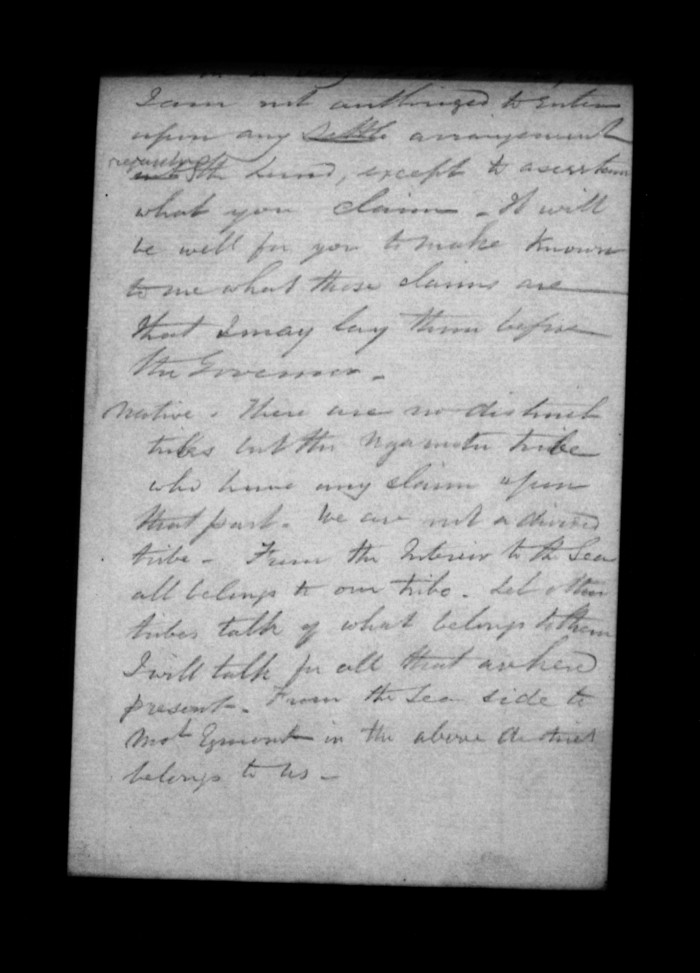 I am not authorized to enter
upon any settle arrangement
regarding
the Land, except to ascertain
what you claim - It will
be well for you to make known
to me what these claims are
that I may lay them before
the Governor -
Native. There are no distinct
tribes but the Ngamotu tribe
who have any claim upon
that part. We are not a divided
tribe - From the Interior to the Sea
all belongs to our tribe. Let other
tribes talk of what belongs to them
I will talk for all that are here
present. From the Sea side to
Mot Egmont in the above district
belongs to us -